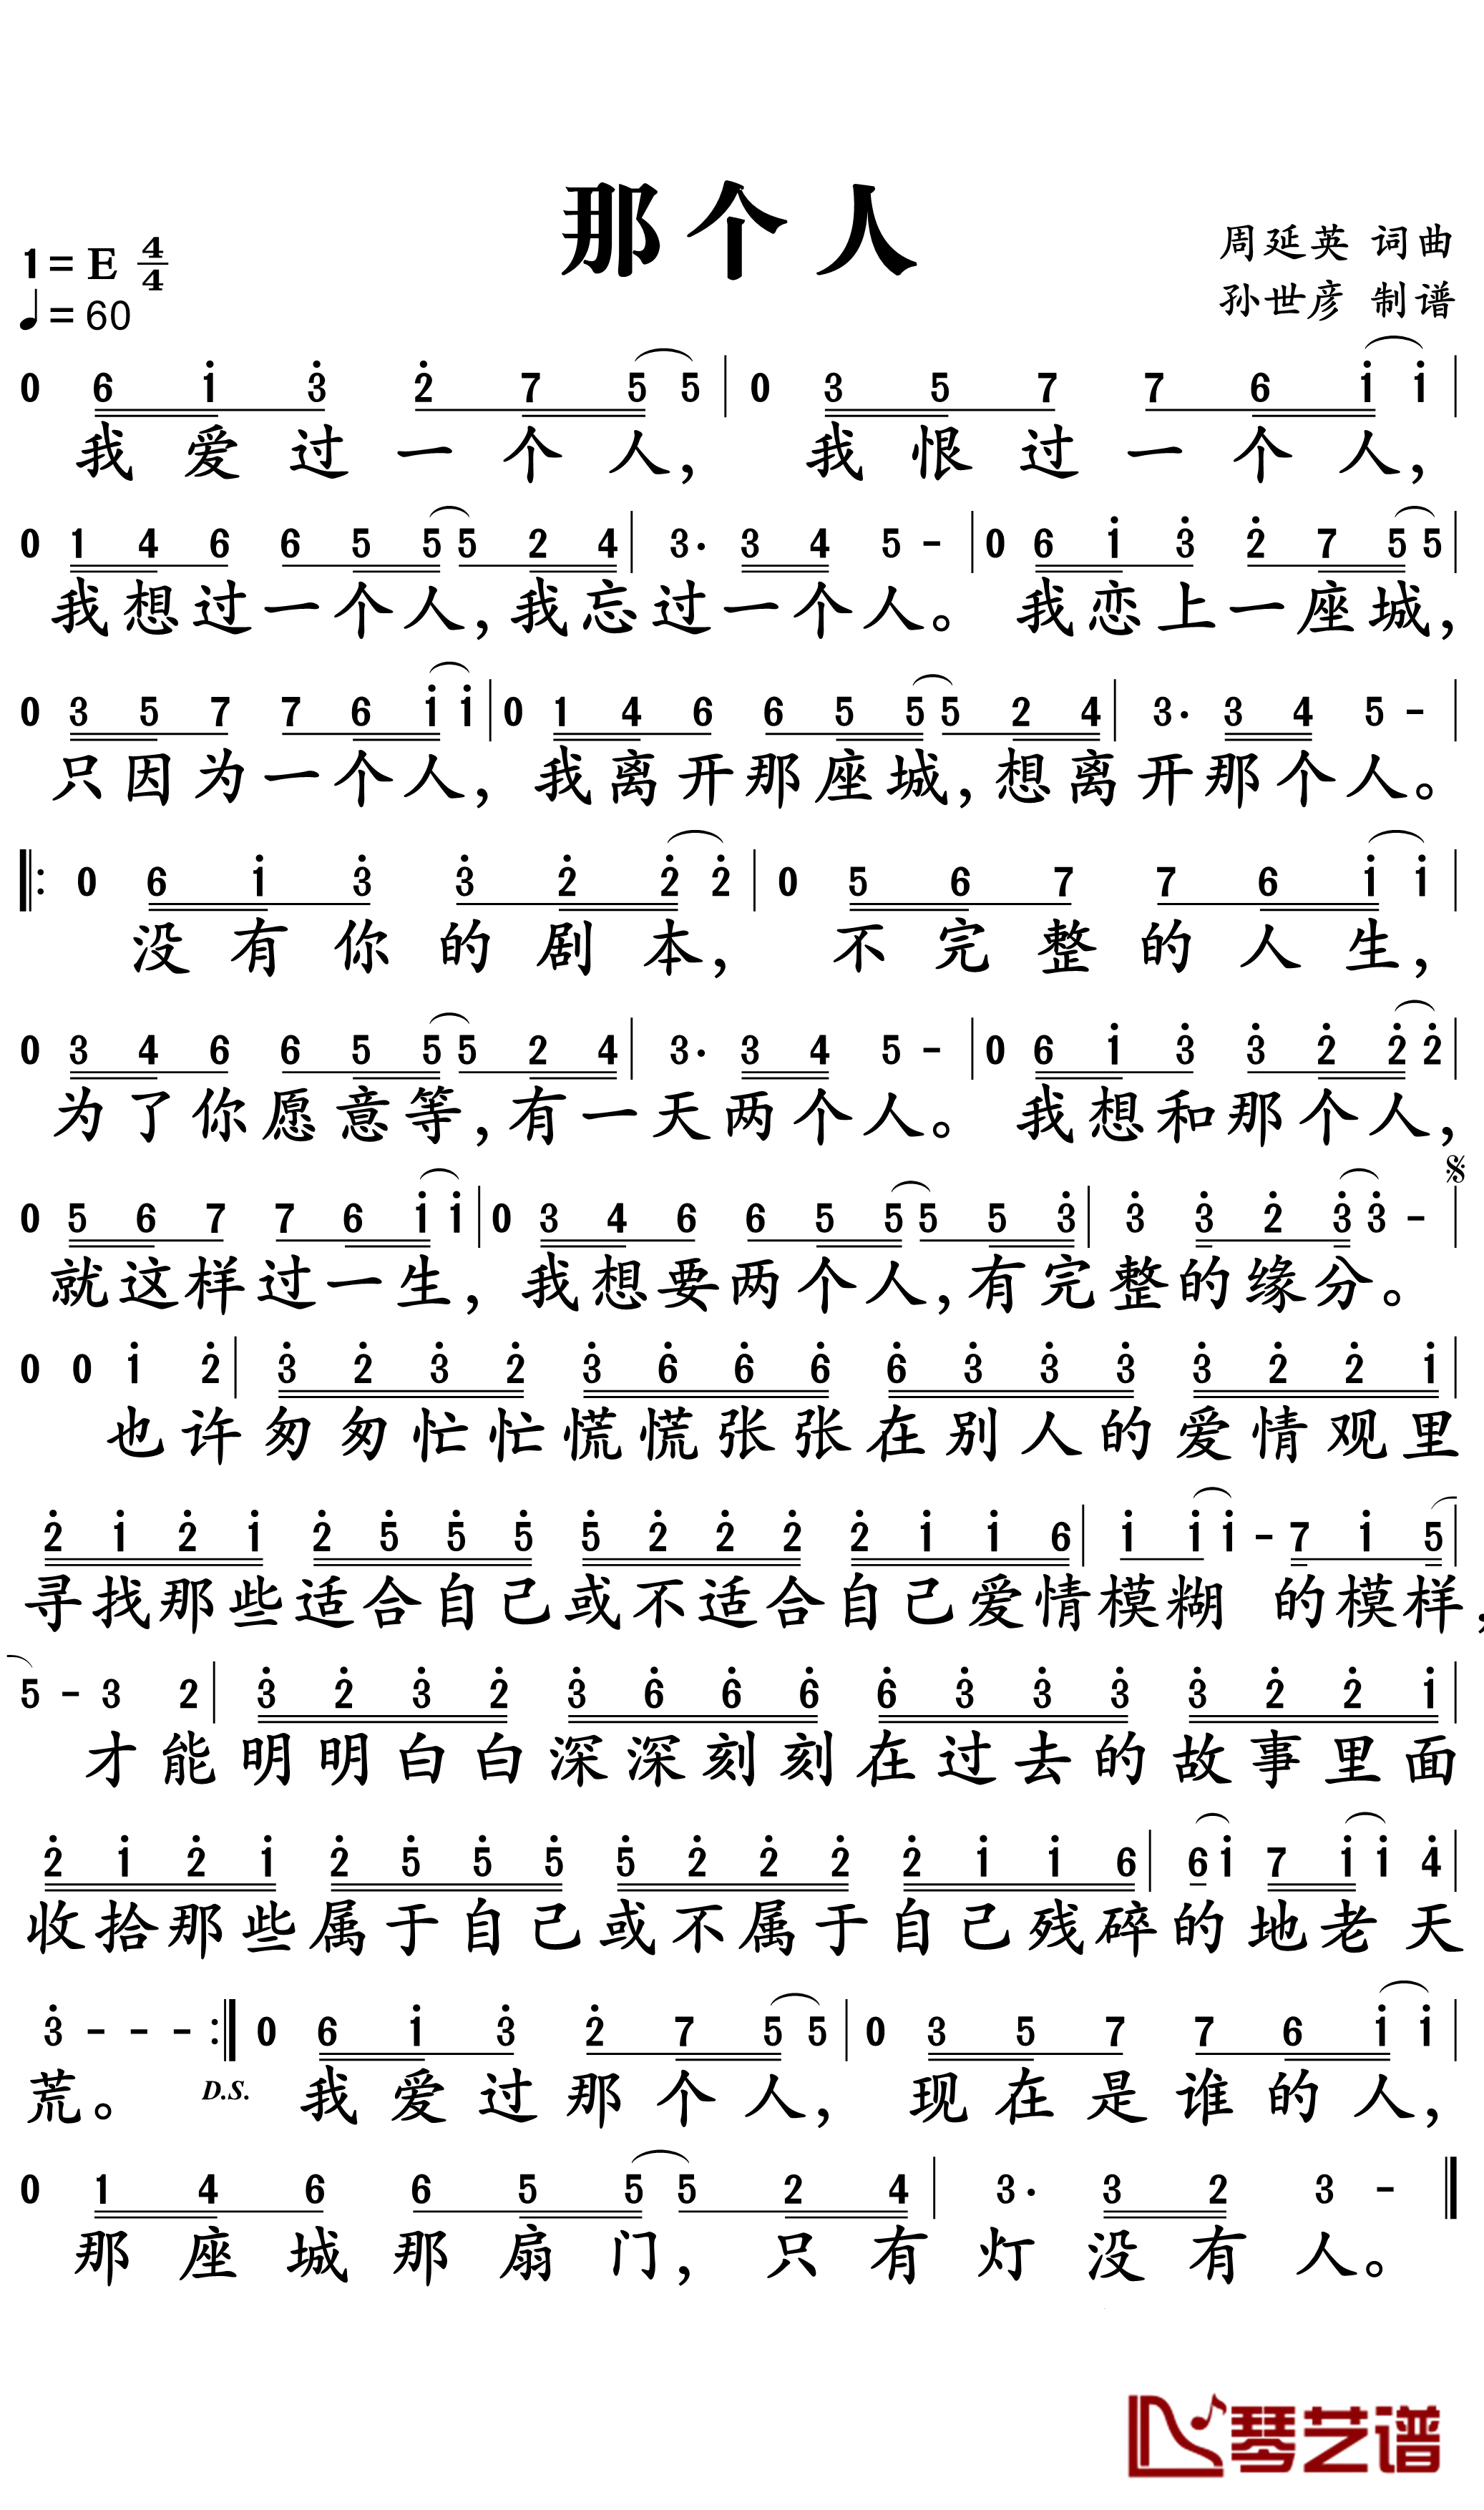 那个人
1=E 4/4
周延英 词曲
♩=60
孙世彦 制谱
0 6 1 3 2 7 5 5 | 0 3 5 7 7 6 1 1 |
我爱过一个人，我恨过一个人，
0 1 4 6 6 5 5 5 2 4 | 3· 3 4 5 - | 0 6 1 3 2 7 5 5 |
我想过一个人，我忘过一个人。我恋上一座城，
0 3 5 7 7 6 1 1 | 0 1 4 6 6 5 5 5 2 4 | 3· 3 4 5 - |
只因为一个人，我离开那座城，想离开那个人。
‖: 0 6 1 3 3 2 2 2 | 0 5 6 7 7 6 1 1 |
没有你的剧本，不完整的人生，
0 3 4 6 6 5 5 5 2 4 | 3· 3 4 5 - | 0 6 1 3 3 2 2 2 |
为了你愿意等，有一天两个人。我想和那个人，
0 5 6 7 7 6 1 1 | 0 3 4 6 6 5 5 5 5 3 | 3 3 2 3 3 - |
就这样过一生，我想要两个人，有完整的缘分。
0 0 1 2 | 3 2 3 2 3 6 6 6 6 3 3 3 3 2 2 1 |
也许匆匆忙忙慌慌张张在别人的爱情观里
2 1 2 1 2 5 5 5 5 2 2 2 2 1 1 6 | 1 1 1 - 7 1 5 |
寻找那些适合自己或不适合自己爱情模糊 的模样，
5 - 3 2 | 3 2 3 2 3 6 6 6 6 3 3 3 3 2 2 1 |
才能明明白白深深刻刻在过去的故事里面
2 1 2 1 2 5 5 5 5 2 2 2 2 1 1 6 | 6 1 7 1 1 4 |
收拾那些属于自己或不属于自己残碎的地老天
3 - - - :‖ 0 6 1 3 2 7 5 5 | 0 3 5 7 7 6 1 1 |
荒。 D.S. 我爱过那个人，现在是谁的人，
0 1 4 6 6 5 5 5 2 4 | 3· 3 2 3 - ‖
那座城那扇门，只有灯没有人。
琴艺谱